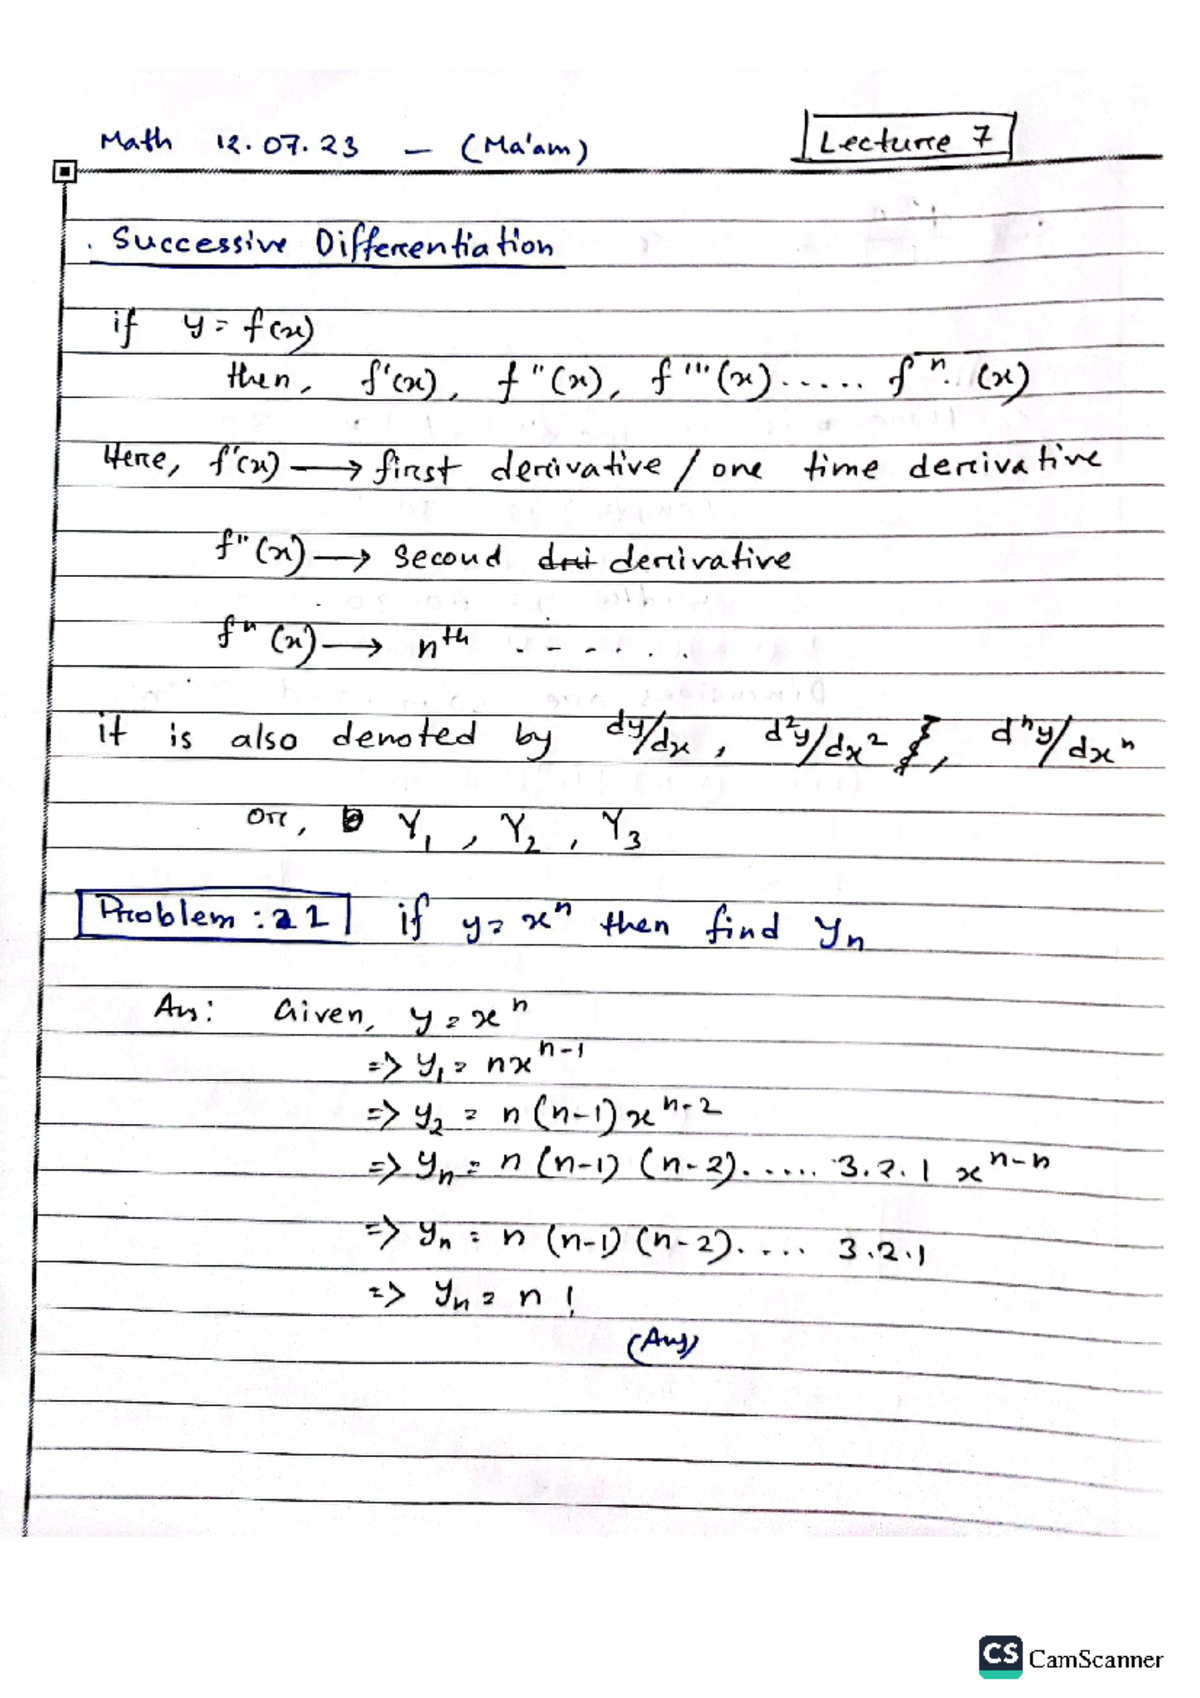 Math 12.07.23 — (Ma'am)
Lecture 7
Successive Differentiation
if y = f(x)
then, f'(x), f''(x), f'''(x)...... fⁿ (x)
Here, f'(x) → first derivative / one time derivative
f''(x) → second dri derivative
fⁿ (x) → nth .......
it is also denoted by dy/dx , d²y/dx² , dⁿy/dxⁿ
or, Y₁ , Y₂ , Y₃
Problem : 1 if y = xⁿ then find yₙ
Ans: Given, y = xⁿ
=> y₁ = nxⁿ⁻¹
=> y₂ = n (n-1) xⁿ⁻²
=> yₙ = n (n-1) (n-2)...... 3.2.1 xⁿ⁻ⁿ
=> yₙ = n (n-1) (n-2)..... 3.2.1
=> yₙ = n !
(Ans)
CS CamScanner